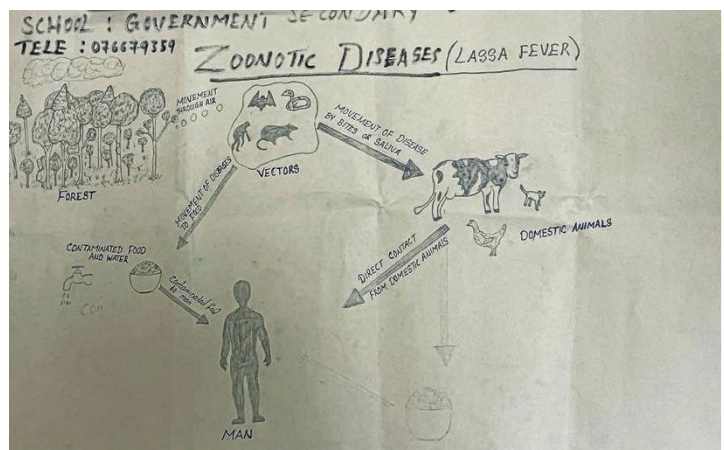 SCHOOL : GOVERNMENT SECONDARY
TELE : 076679359
ZOONOTIC DISEASES (LASSA FEVER)
MOVEMENT
THROUGH AIR
FOREST
VECTORS
MOVEMENT OF DISEASE
BY BITES OR SALIVA
MOVEMENT OF DISEASES
TO FOOD
DOMESTIC ANIMALS
DIRECT CONTACT
FROM DOMESTIC ANIMALS
CONTAMINATED FOOD
AND WATER
Con
Contaminated food
to man
MAN